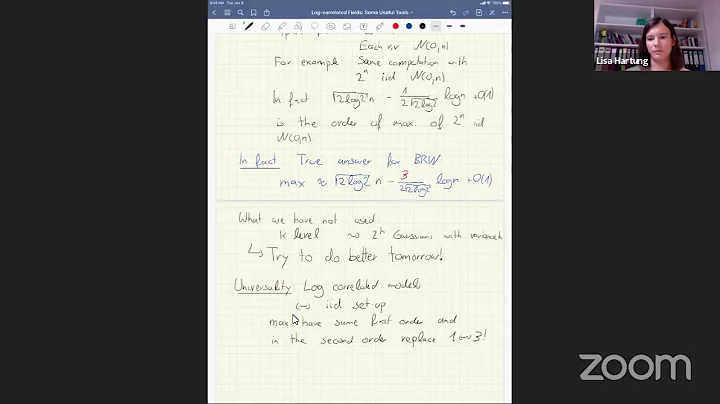 9:41 AM Tue Jan 9
Log-correlated Fields: Some Useful Tools
Each r.v. N(0,n)
For example Same computation with
2^n iid N(0,n)
In fact √(2log2) n - 1/(2√(2log2)) logn + O(1)
is the order of max. of 2^n iid
N(0,n).
In fact True answer for BRW
max ≈ √(2log2) n - 3/(2√(2log2)) logn + O(1)
What we have not used
k level ~ 2^k Gaussians with variance k
↳ Try to do better tomorrow!
Universality: Log correlated models
↔ iid set-up
max have same first order and
in the second order replace 1 ↔ 3!
Lisa Hartung
zoom